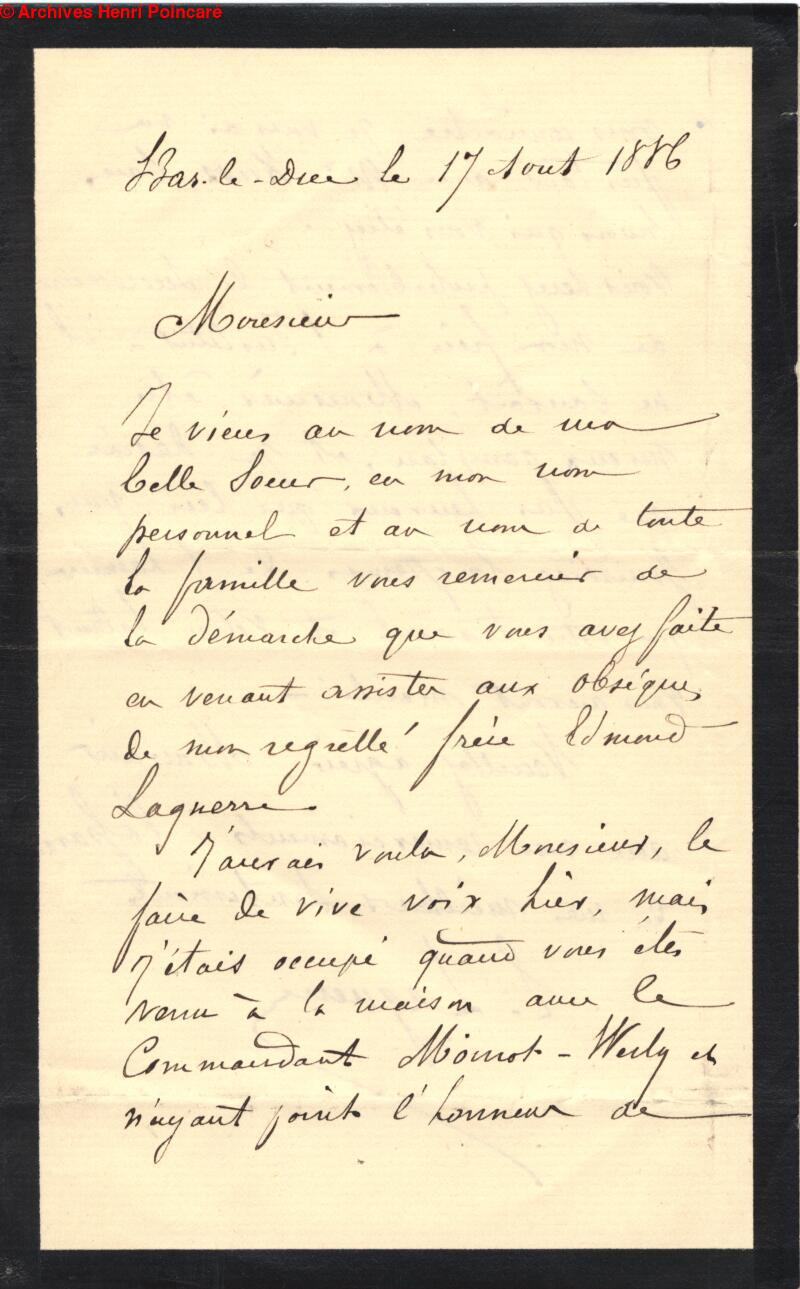 © Archives Henri Poincaré
Bar-le-Duc le 17 Aout 1886
Monsieur
Je viens au nom de ma
belle Soeur, en mon nom
personnel et au nom de toute
la famille vous remercier de
la démarche que vous avez faite
en venant assister aux obsèques
de mon regretté frère Edmond
Laguerre.
J'aurais voulu, Monsieur, le
faire de vive voix hier, mais
j'étais occupé quand vous êtes
venu à la maison avec le
Commandant Moinot-Werly et
n'ayant point l'honneur de